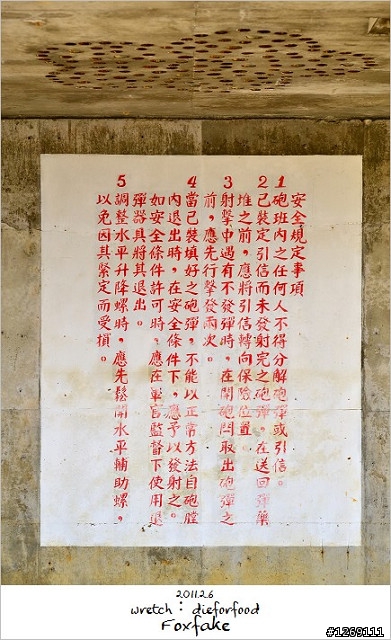 安全規定事項
1砲班內之任何人不得分解砲彈或引信。
2已裝定引信而未發射完之砲彈，在送回彈藥
堆之前，應將引信轉向保險位置
3射擊中遇有不發彈時，在開砲閂取出砲彈之
前，應先行擊發兩次。
4當已裝填好之砲彈，不能以正常方法自砲膛
內退出時，在安全條件下，應予以發射之。
如安全條件許可時，應在軍官監督下使用退
彈器具將其退出。
5調整水平升降螺時，應先鬆開水平輔助螺，
以免因其緊定而受損。
2011.2.6
wretch : dieforfood
Foxfake
#1269111